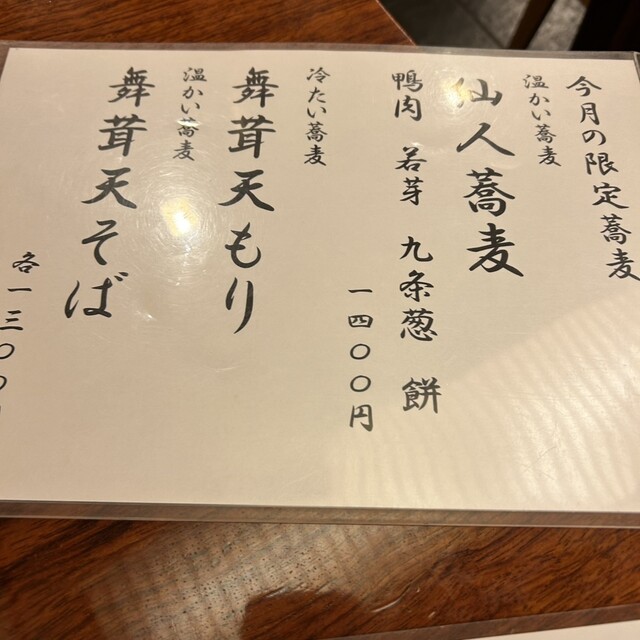 今月の限定蕎麦
温かい蕎麦
仙人蕎麦
鴨肉 若芽 九条葱 餅
一四〇〇円
冷たい蕎麦
舞茸天もり
温かい蕎麦
舞茸天そば
各一三〇〇円